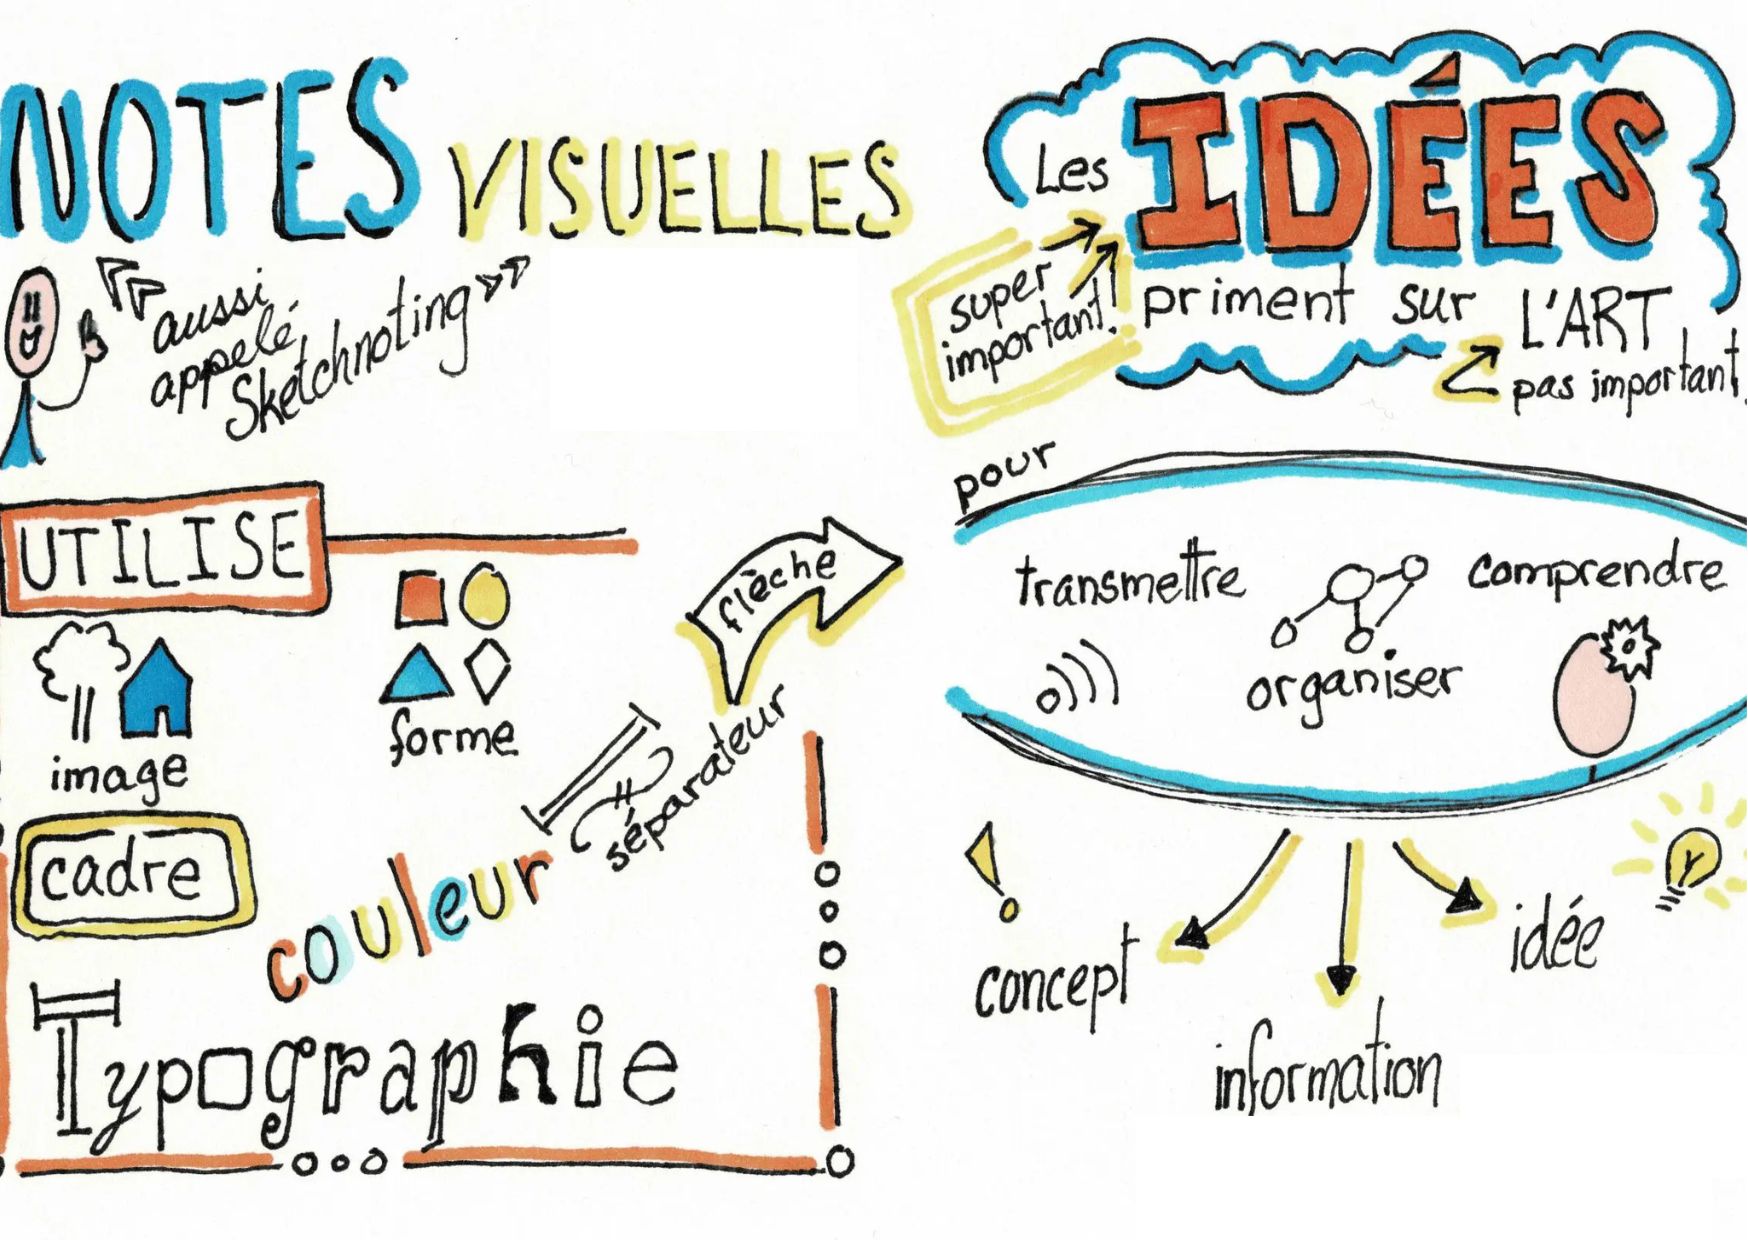 NOTES VISUELLES
aussi
appelé
Sketchnoting
UTILISE
image
forme
flèche
séparateur
cadre
couleur
Typographie
Les IDÉES
priment sur L'ART
super
important!
pas important
pour
transmettre
organiser
comprendre
concept
information
idée